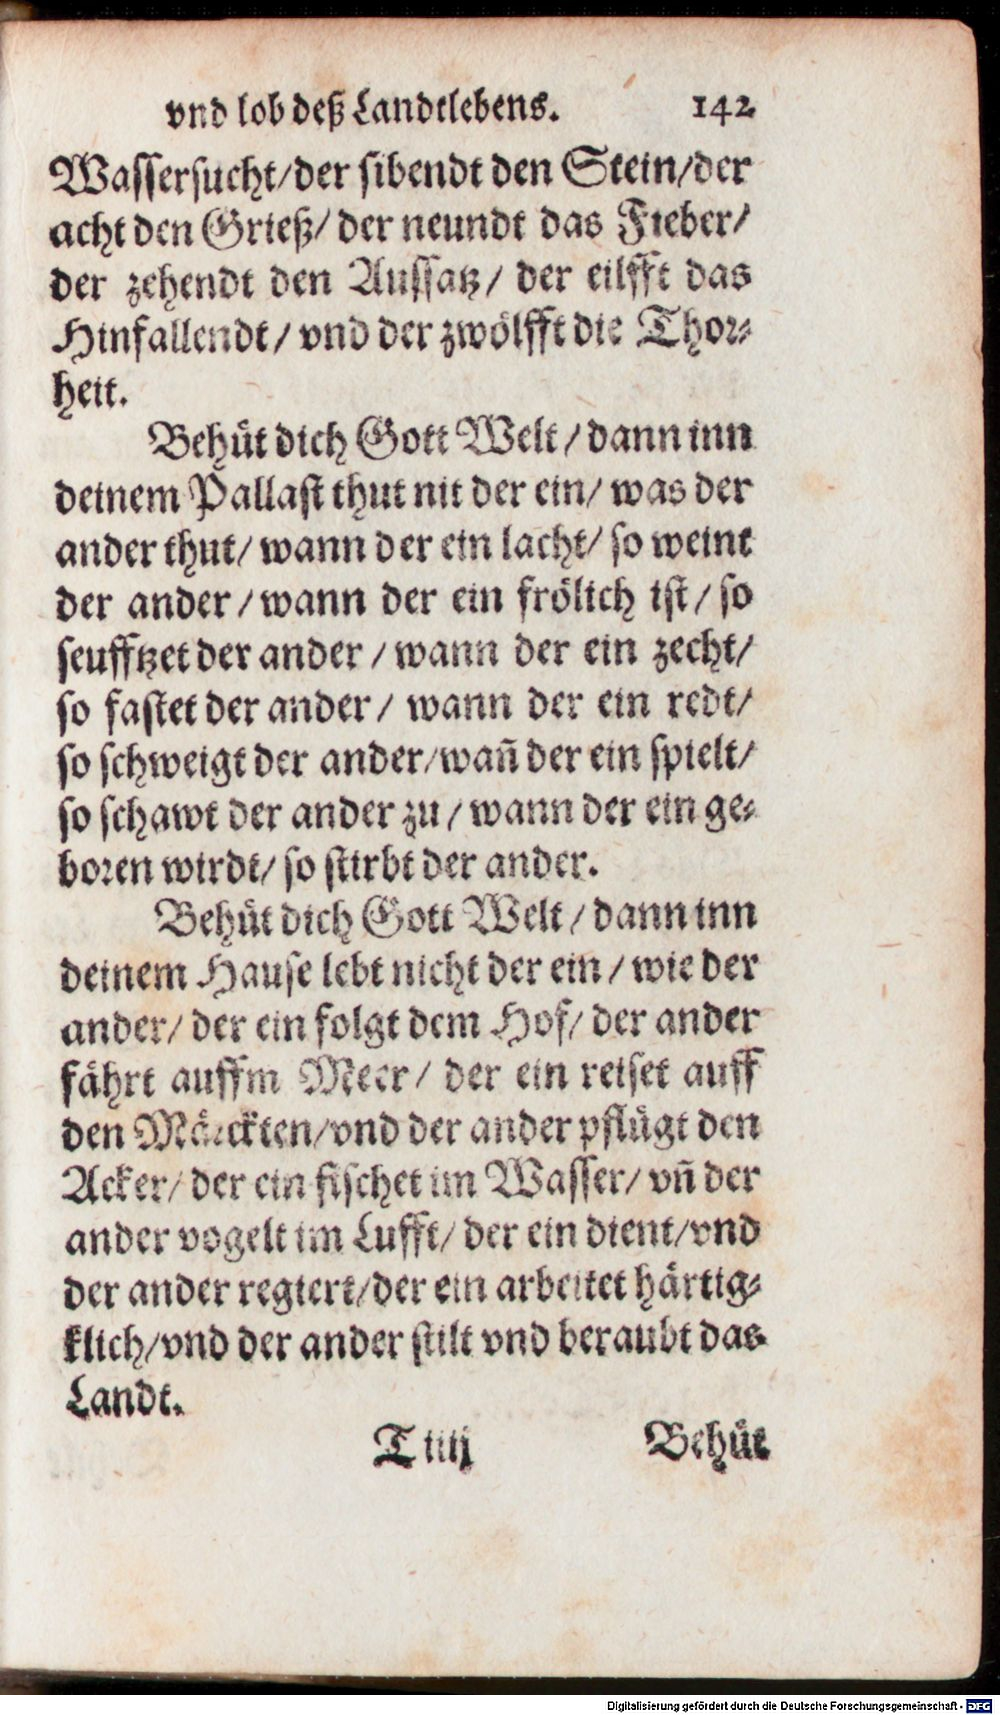 vnd lob deß Landtlebens. 142
Wassersucht/der sibendt den Stein/der
acht den Grieß/ der neundt das Fieber/
der zehendt den Aussatz/ der eilfft das
Hinfallendt/ vnd der zwölfft die Thor⸗
heit.
Behüt dich Gott Welt/ dann inn
deinem Pallast thut nit der ein/ was der
ander thut/ wann der ein lacht/ so weint
der ander/ wann der ein frölich ist/ so
seufftzet der ander/ wann der ein zecht/
so fastet der ander/ wann der ein redt/
so schweigt der ander/wañ der ein spielt/
so schawt der ander zu/ wann der ein ge⸗
boren wirdt/ so stirbt der ander.
Behüt dich Gott Welt/ dann inn
deinem Hause lebt nicht der ein/ wie der
ander/ der ein folgt dem Hof/ der ander
fährt auffm Meer/ der ein reiset auff
den Märckten/vnd der ander pflügt den
Acker/ der ein fischet im Wasser/ vñ der
ander vogelt im Lufft/ der ein dient/vnd
der ander regiert/der ein arbeitet härtig⸗
klich/vnd der ander stilt vnd beraubt das
Landt.
T iiij Behüt
Digitalisierung gefördert durch die Deutsche Forschungsgemeinschaft - DFG